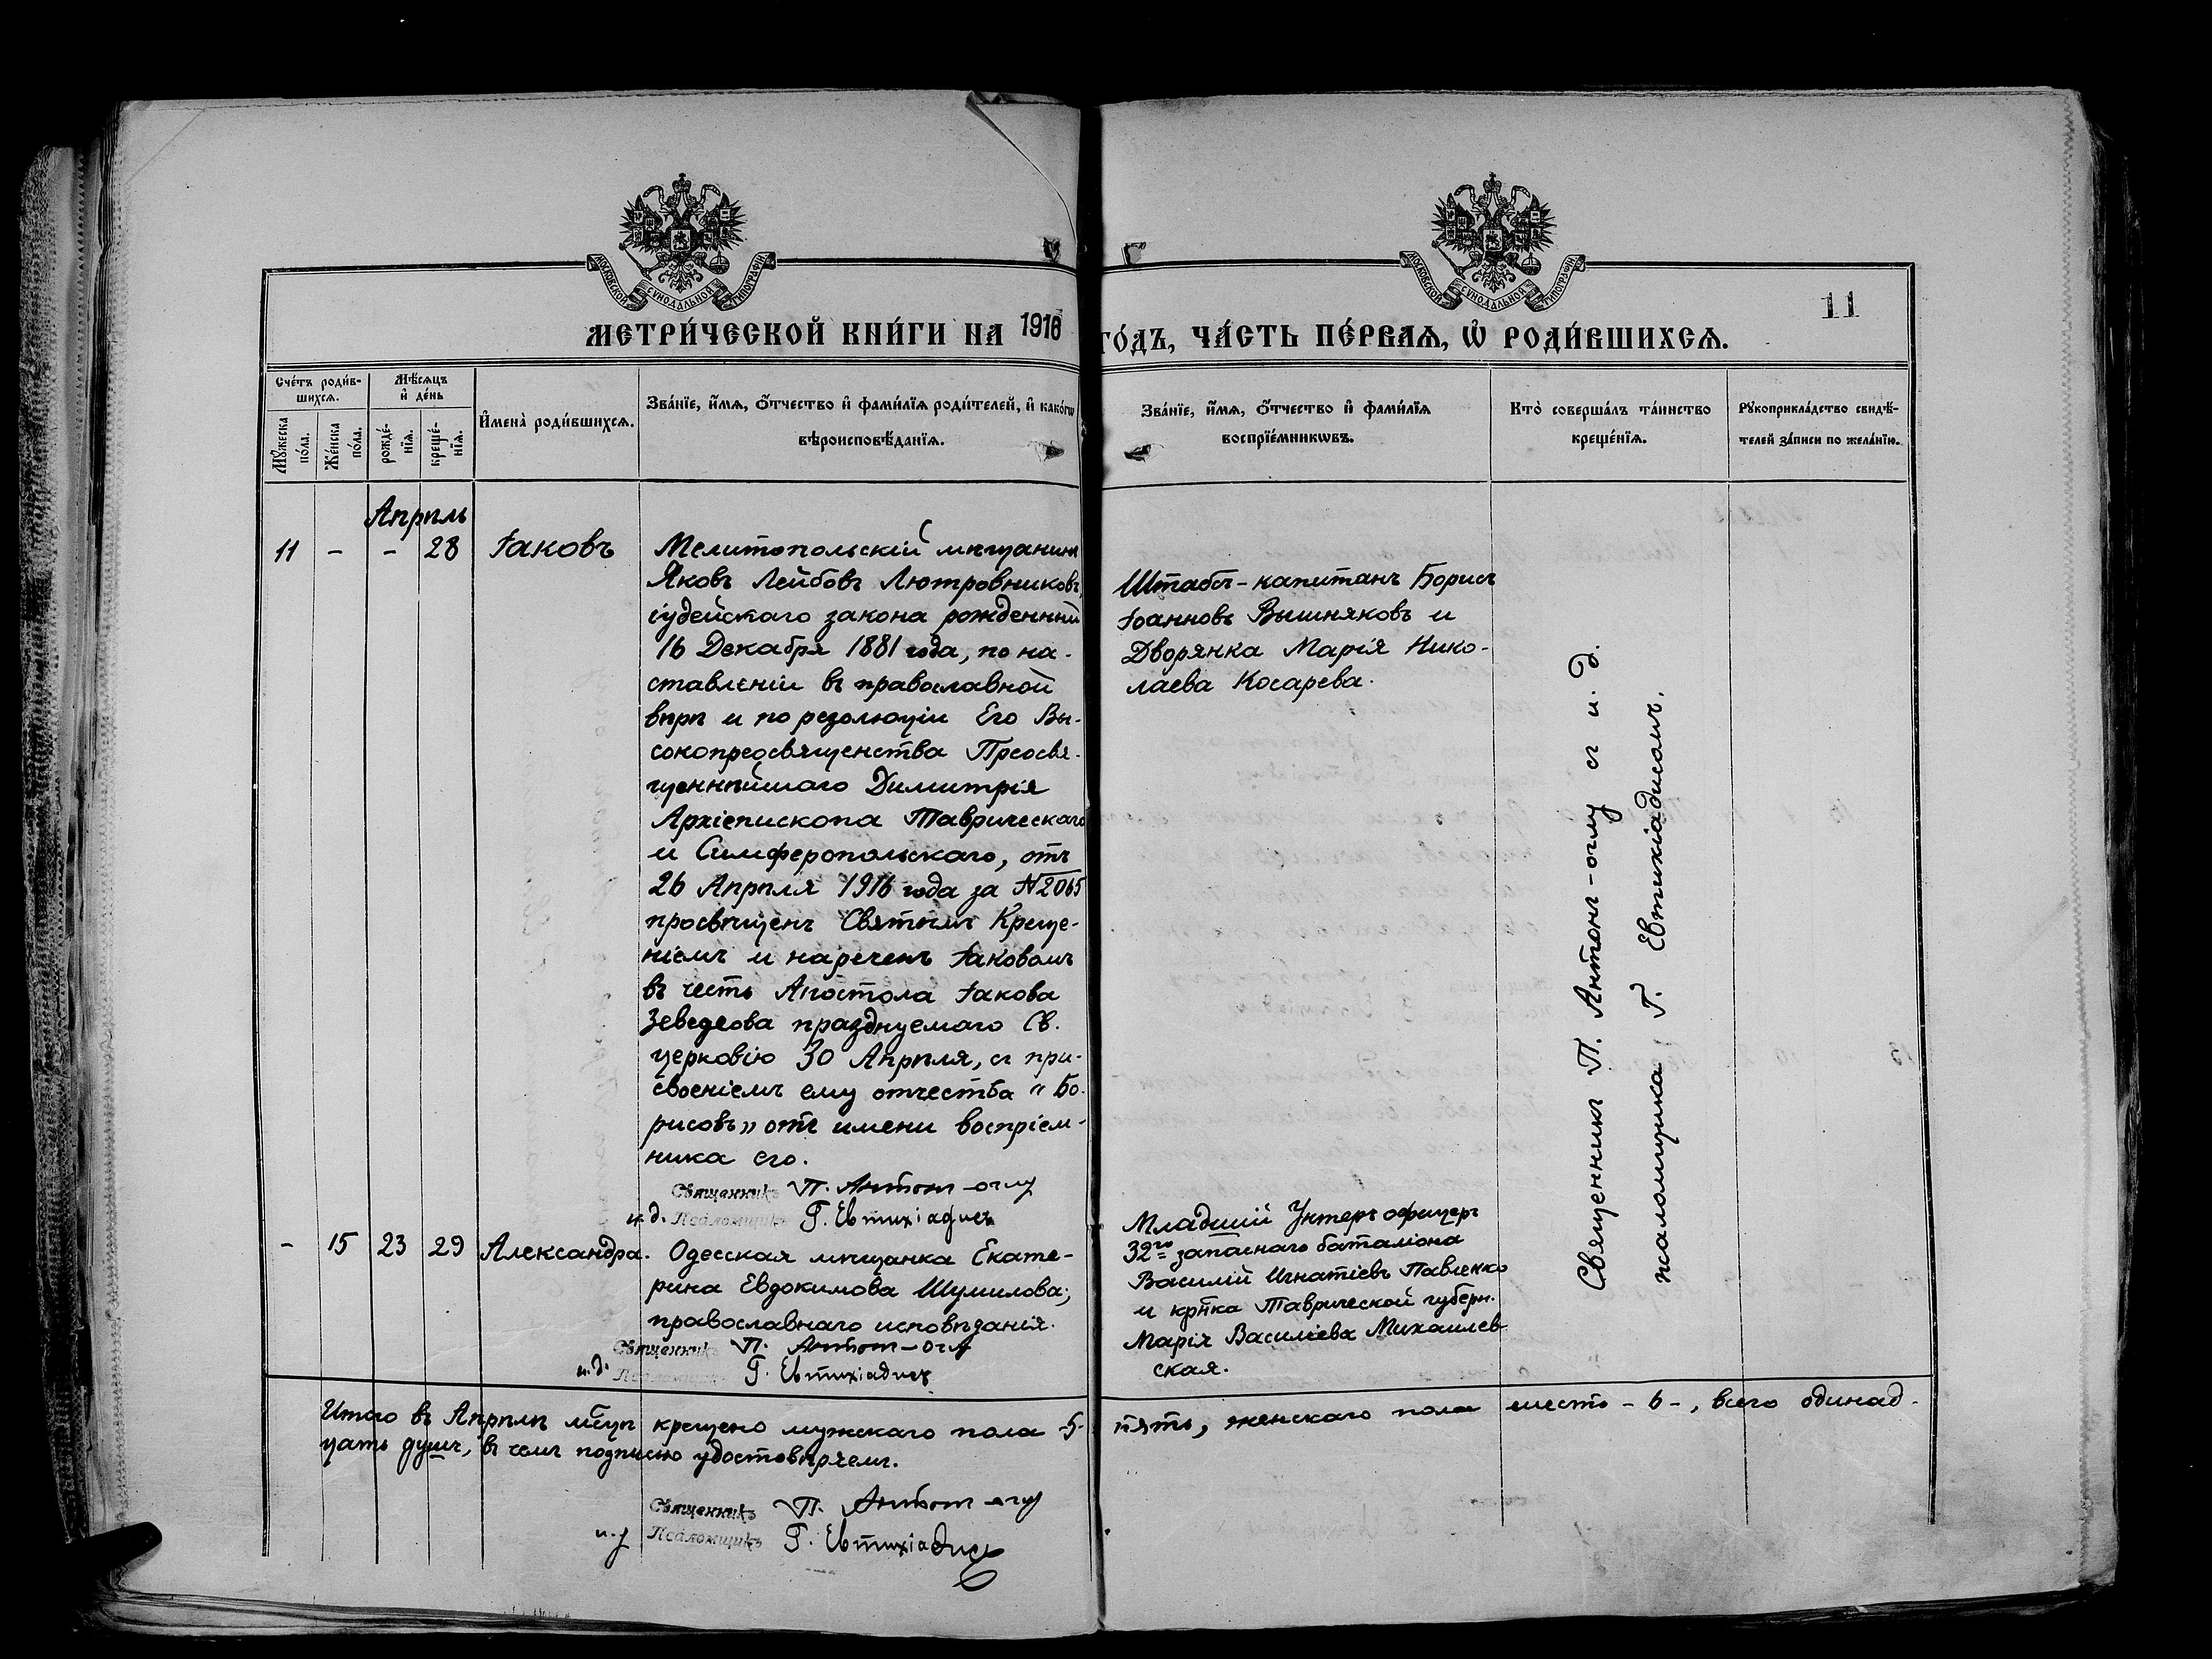 МОСКОВСКОЙ СѴНОДАЛЬНОЙ ТИПОГРАФІИ
МОСКОВСКОЙ СѴНОДАЛЬНОЙ ТИПОГРАФІИ
11
МЕТРИ́ЧЕСКОЙ КНИ́ГИ НА 1916 ГО́ДЪ, ЧА́СТЬ ПЕ́РВАѦ, Ѡ҆ РОДИ́ВШИХСѦ.
Сче́тъ роди́в-
шихсѧ.
Мꙋ́жеска
по́ла.
Же́нска
по́ла.
Мѣ́сѧцъ
и҆ де́нь
рожде́-
нїѧ.
креще́-
нїѧ.
И҆мена̀ роди́вшихсѧ.
Зва́нїе, и҆́мѧ, ѻ҆́тчество и҆ фами́лїѧ роди́телей, и҆ како́гѡ
вѣроисповѣ́данїѧ.
Зва́нїе, и҆́мѧ, ѻ҆́тчество и҆ фами́лїѧ
воспрїе́мникѡвъ.
Кто̀ соверша́лъ та́инство
креще́нїѧ.
Рꙋкоприкла́дство свидѣ́-
телей за́писи по жела́нїю.
Апрѣль
11 - - 28 Іаковъ
Мелитопольскій мѣщанинъ
Яковъ Лейбовъ Лютровниковъ,
іудейскаго закона рожденный
16 Декабря 1881 года, по на-
ставленіи въ православной
вѣрѣ и по резолюціи Его Вы-
сокопреосвященства Преосвя-
щеннѣйшаго Димитрія
Архіепископа Таврическаго
и Симферопольскаго, отъ
26 Апрѣля 1916 года за №2065
просвѣщенъ Святымъ Креще-
ніемъ и нареченъ Іаковомъ
въ честь Апостола Іакова
Зеведеова празднуемаго Св.
церковію 30 Апрѣля, съ при-
своеніемъ ему отчества "Бо-
рисовъ" отъ имени воспріем-
ника его.
Священникъ П. Антон-оглу
и.д. Псаломщикъ Г. Евтихіадисъ
Штабсъ-капитанъ Борисъ
Іоанновъ Вышняковъ и
Дворянка Марія Нико-
лаева Косарева.
Священникъ П. Антонъ-оглу съ и.д.
псаломщика Г. Евтихіадисомъ.
- 15 23 29 Александра.
Одесская мѣщанка Екате-
рина Евдокимова Шумилова;
православнаго исповѣданія.
Священникъ П. Антон-оглу
и.д. Псаломщикъ Г. Евтихіадисъ
Младшій Унтеръ офицеръ
32го запаснаго баталіона
Василій Игнатіевъ Павленко
и кр̃тка Таврической губерн.
Марія Василіева Михаилев-
ская.
Итого въ Апрѣлѣ мс̃цѣ крещено мужскаго пола -5- пять, женскаго пола шесть -6-, всего одинад-
цать душъ, въ чемъ подписью удостовѣряемъ.
Священникъ П. Антон-оглу
Псаломщикъ Г. Евтихіадисъ